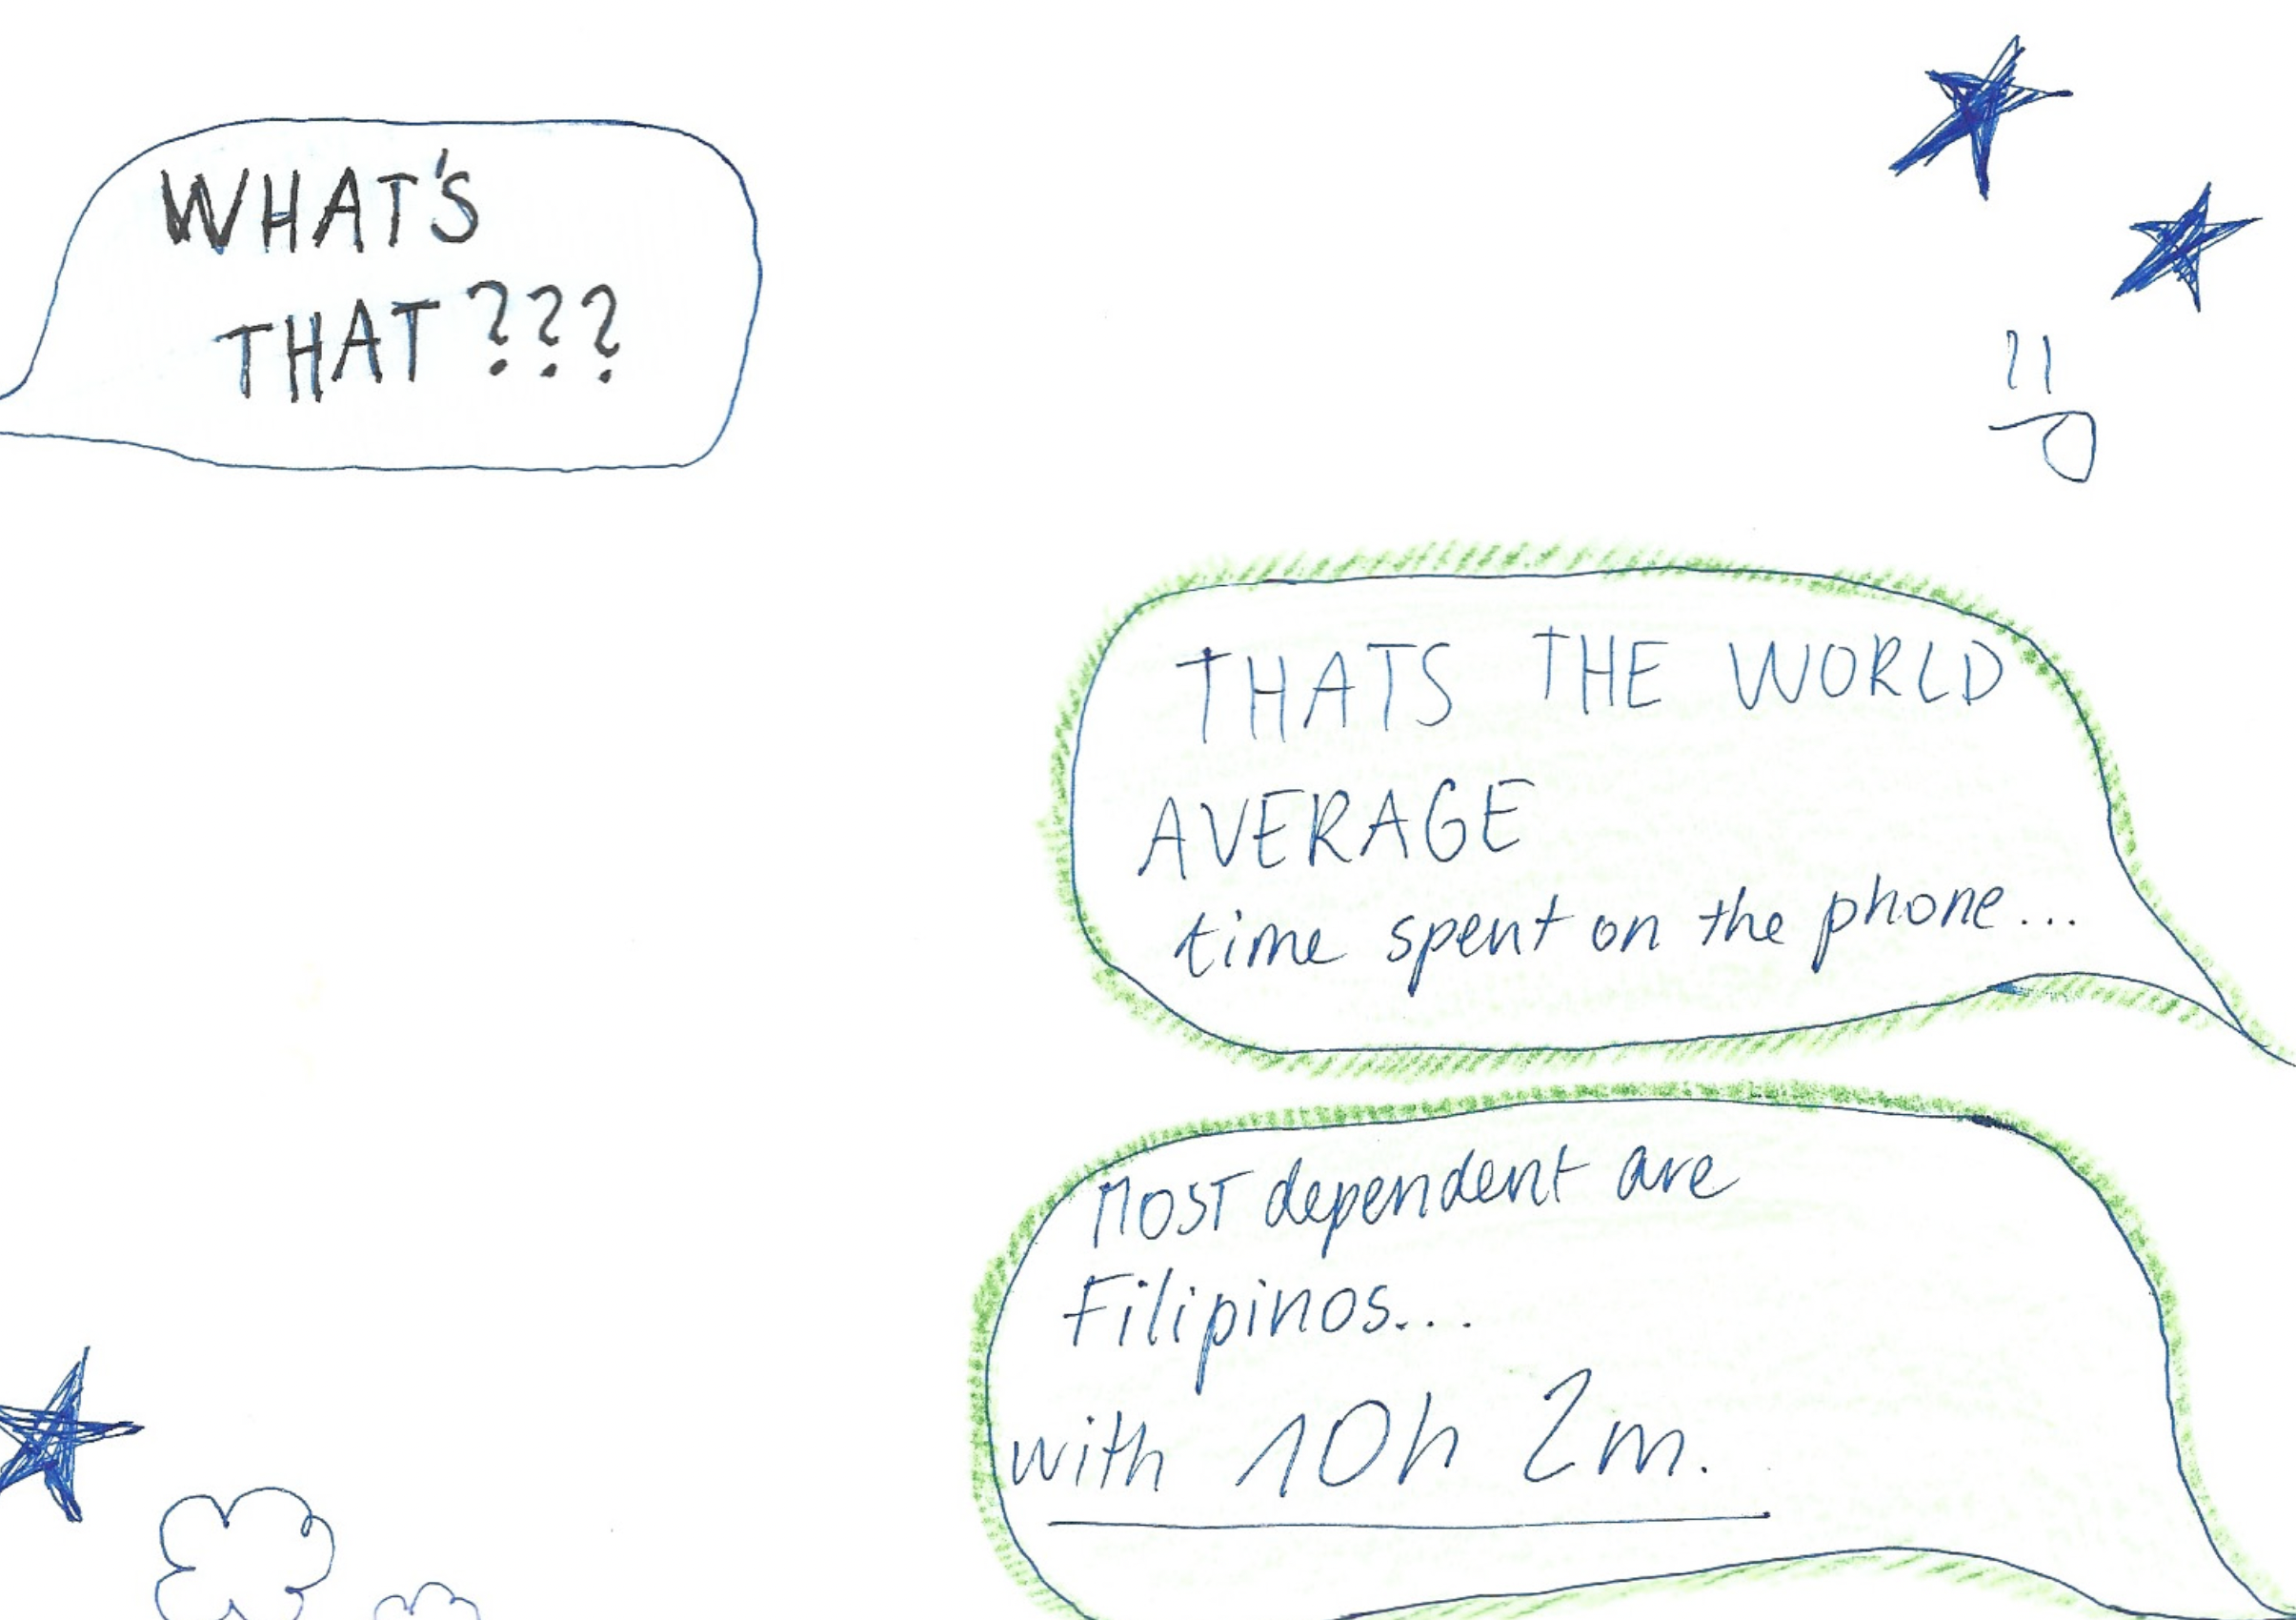 WHAT'S
THAT???
THATS THE WORLD
AVERAGE
time spent on the phone...
MOST dependent are
Filipinos...
with 10h 2m.